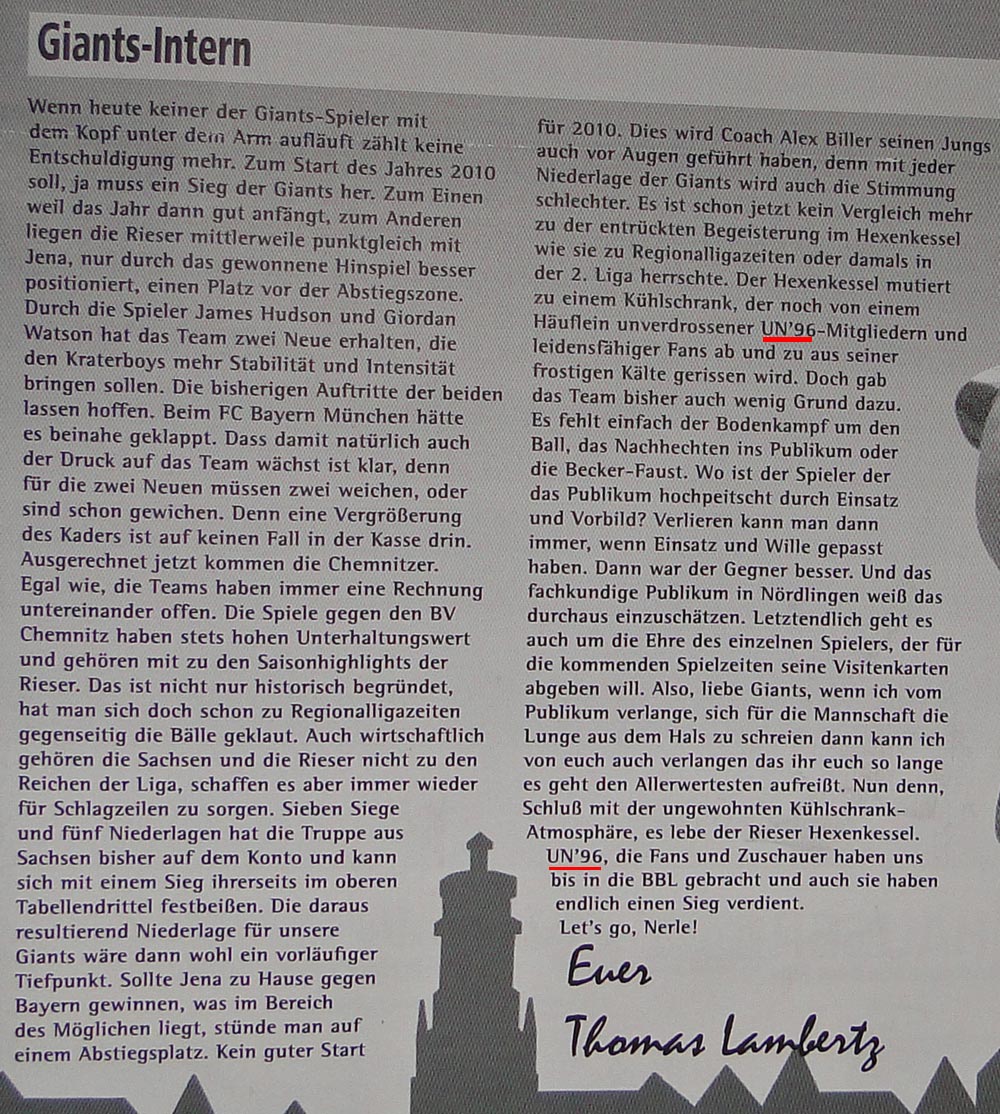 Giants-Intern
Wenn heute keiner der Giants-Spieler mit
dem Kopf unter dem Arm aufläuft zählt keine
Entschuldigung mehr. Zum Start des Jahres 2010
soll, ja muss ein Sieg der Giants her. Zum Einen
weil das Jahr dann gut anfängt, zum Anderen
liegen die Rieser mittlerweile punktgleich mit
Jena, nur durch das gewonnene Hinspiel besser
positioniert, einen Platz vor der Abstiegszone.
Durch die Spieler James Hudson und Giordan
Watson hat das Team zwei Neue erhalten, die
den Kraterboys mehr Stabilität und Intensität
bringen sollen. Die bisherigen Auftritte der beiden
lassen hoffen. Beim FC Bayern München hätte
es beinahe geklappt. Dass damit natürlich auch
der Druck auf das Team wächst ist klar, denn
für die zwei Neuen müssen zwei weichen, oder
sind schon gewichen. Denn eine Vergrößerung
des Kaders ist auf keinen Fall in der Kasse drin.
Ausgerechnet jetzt kommen die Chemnitzer.
Egal wie, die Teams haben immer eine Rechnung
untereinander offen. Die Spiele gegen den BV
Chemnitz haben stets hohen Unterhaltungswert
und gehören mit zu den Saisonhighlights der
Rieser. Das ist nicht nur historisch begründet,
hat man sich doch schon zu Regionalligazeiten
gegenseitig die Bälle geklaut. Auch wirtschaftlich
gehören die Sachsen und die Rieser nicht zu den
Reichen der Liga, schaffen es aber immer wieder
für Schlagzeilen zu sorgen. Sieben Siege
und fünf Niederlagen hat die Truppe aus
Sachsen bisher auf dem Konto und kann
sich mit einem Sieg ihrerseits im oberen
Tabellendrittel festbeißen. Die daraus
resultierend Niederlage für unsere
Giants wäre dann wohl ein vorläufiger
Tiefpunkt. Sollte Jena zu Hause gegen
Bayern gewinnen, was im Bereich
des Möglichen liegt, stünde man auf
einem Abstiegsplatz. Kein guter Start
für 2010. Dies wird Coach Alex Biller seinen Jungs
auch vor Augen geführt haben, denn mit jeder
Niederlage der Giants wird auch die Stimmung
schlechter. Es ist schon jetzt kein Vergleich mehr
zu der entrückten Begeisterung im Hexenkessel
wie sie zu Regionalligazeiten oder damals in
der 2. Liga herrschte. Der Hexenkessel mutiert
zu einem Kühlschrank, der noch von einem
Häuflein unverdrossener UN'96-Mitgliedern und
leidensfähiger Fans ab und zu aus seiner
frostigen Kälte gerissen wird. Doch gab
das Team bisher auch wenig Grund dazu.
Es fehlt einfach der Bodenkampf um den
Ball, das Nachhechten ins Publikum oder
die Becker-Faust. Wo ist der Spieler der
das Publikum hochpeitscht durch Einsatz
und Vorbild? Verlieren kann man dann
immer, wenn Einsatz und Wille gepasst
haben. Dann war der Gegner besser. Und das
fachkundige Publikum in Nördlingen weiß das
durchaus einzuschätzen. Letztendlich geht es
auch um die Ehre des einzelnen Spielers, der für
die kommenden Spielzeiten seine Visitenkarten
abgeben will. Also, liebe Giants, wenn ich vom
Publikum verlange, sich für die Mannschaft die
Lunge aus dem Hals zu schreien dann kann ich
von euch auch verlangen das ihr euch so lange
es geht den Allerwertesten aufreißt. Nun denn,
Schluß mit der ungewohnten Kühlschrank-
Atmosphäre, es lebe der Rieser Hexenkessel.
UN'96, die Fans und Zuschauer haben uns
bis in die BBL gebracht und auch sie haben
endlich einen Sieg verdient.
Let's go, Nerle!
Euer
Thomas Lambertz